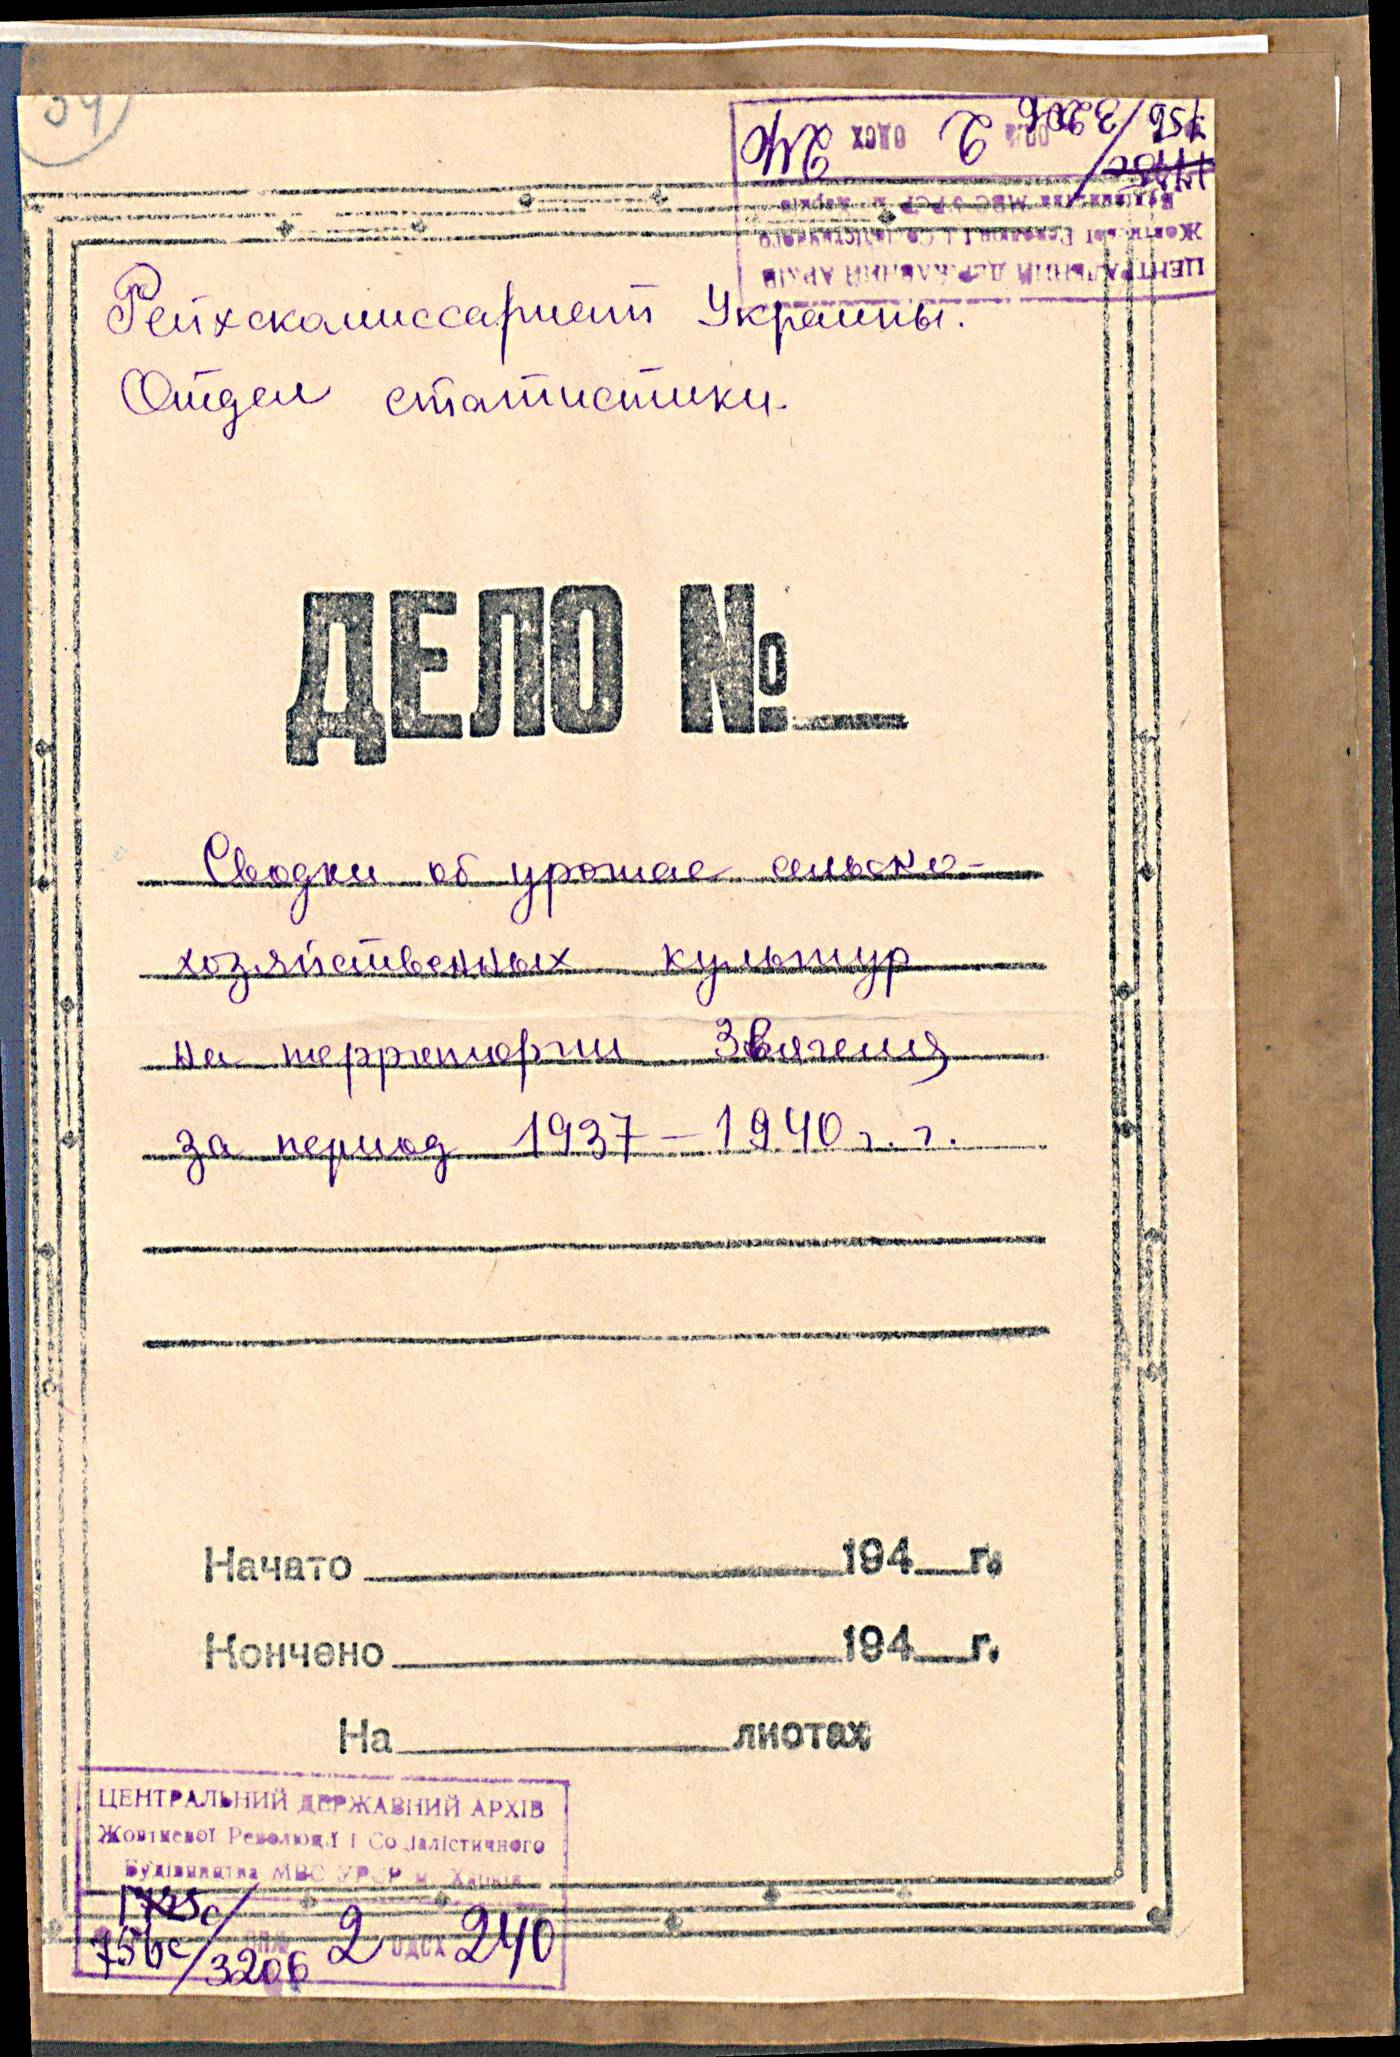 34
756 3206 опис 2 одсх 240
ЦЕНТРАЛЬНИЙ ДЕРЖАВНИЙ АРХІВ
Жовтневої Революції і Соціалістичного
Будівництва МВС УРСР м. Харків
Рейхскомиссариат Украины.
Отдел статистики.
ДЕЛО №
Сводки об урожае сельско-
хозяйственных культур
на территории Звягеля
за период 1937-1940 г. г.
Начато 194 г.
Кончено 194 г.
На листах
ЦЕНТРАЛЬНИЙ ДЕРЖАВНИЙ АРХІВ
Жовтневої Революції і Соціалістичного
Будівництва МВС УРСР м. Харків
756с/3206 2 одсх 240